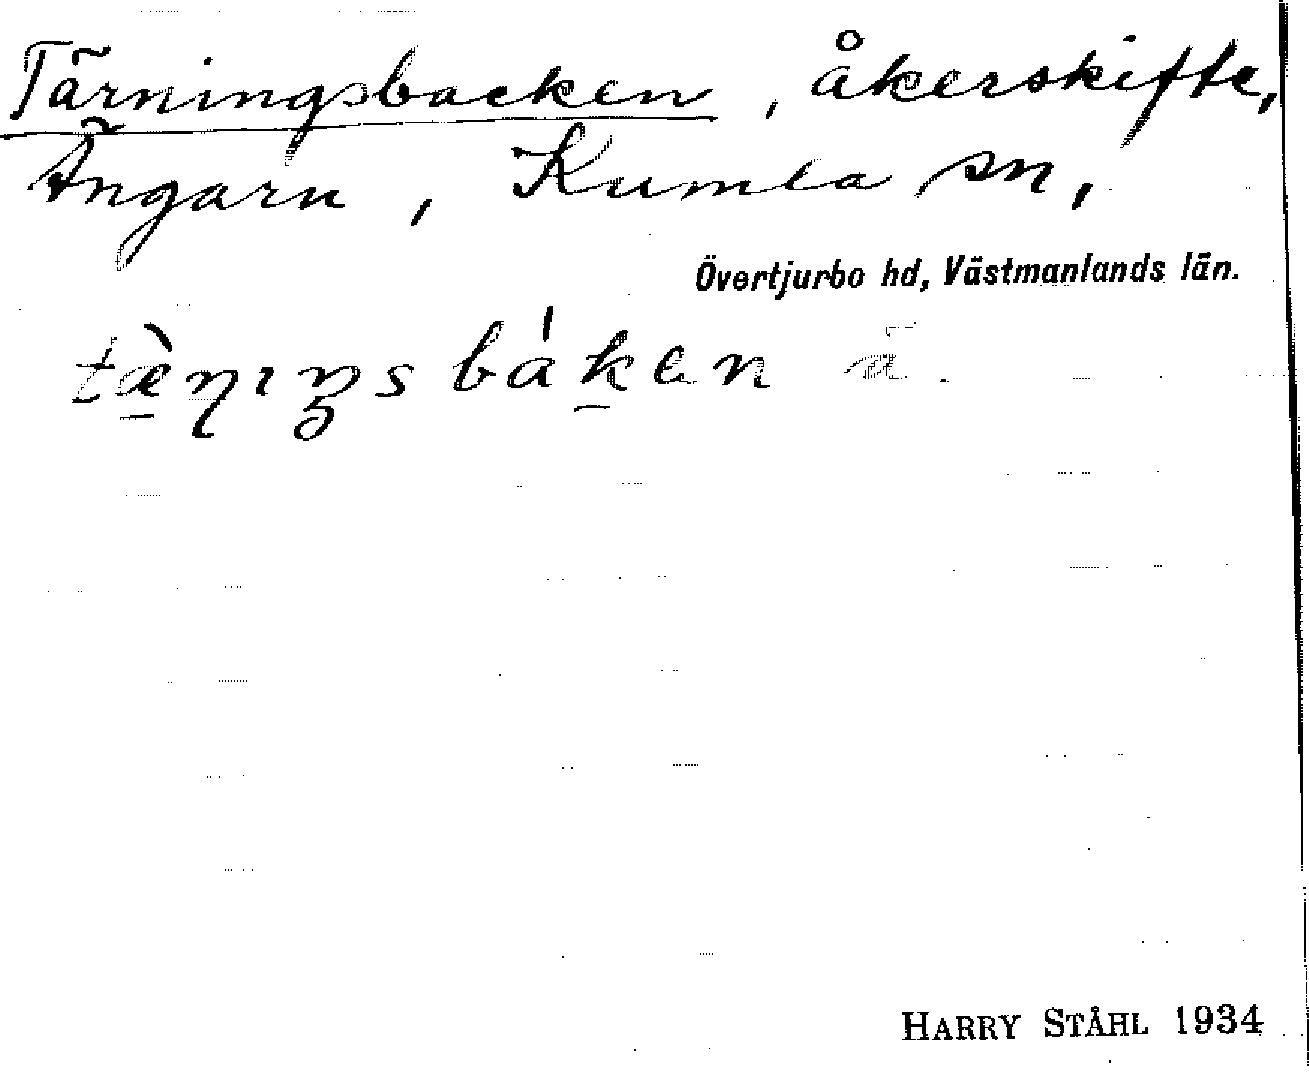 Tärningsbacken, åkerskifte,
Ängarn, Kumla sn,
Övertjurbo hd, Västmanlands län.
tæ̀ɳɪŋs báken ä.
HARRY STÅHL 1934